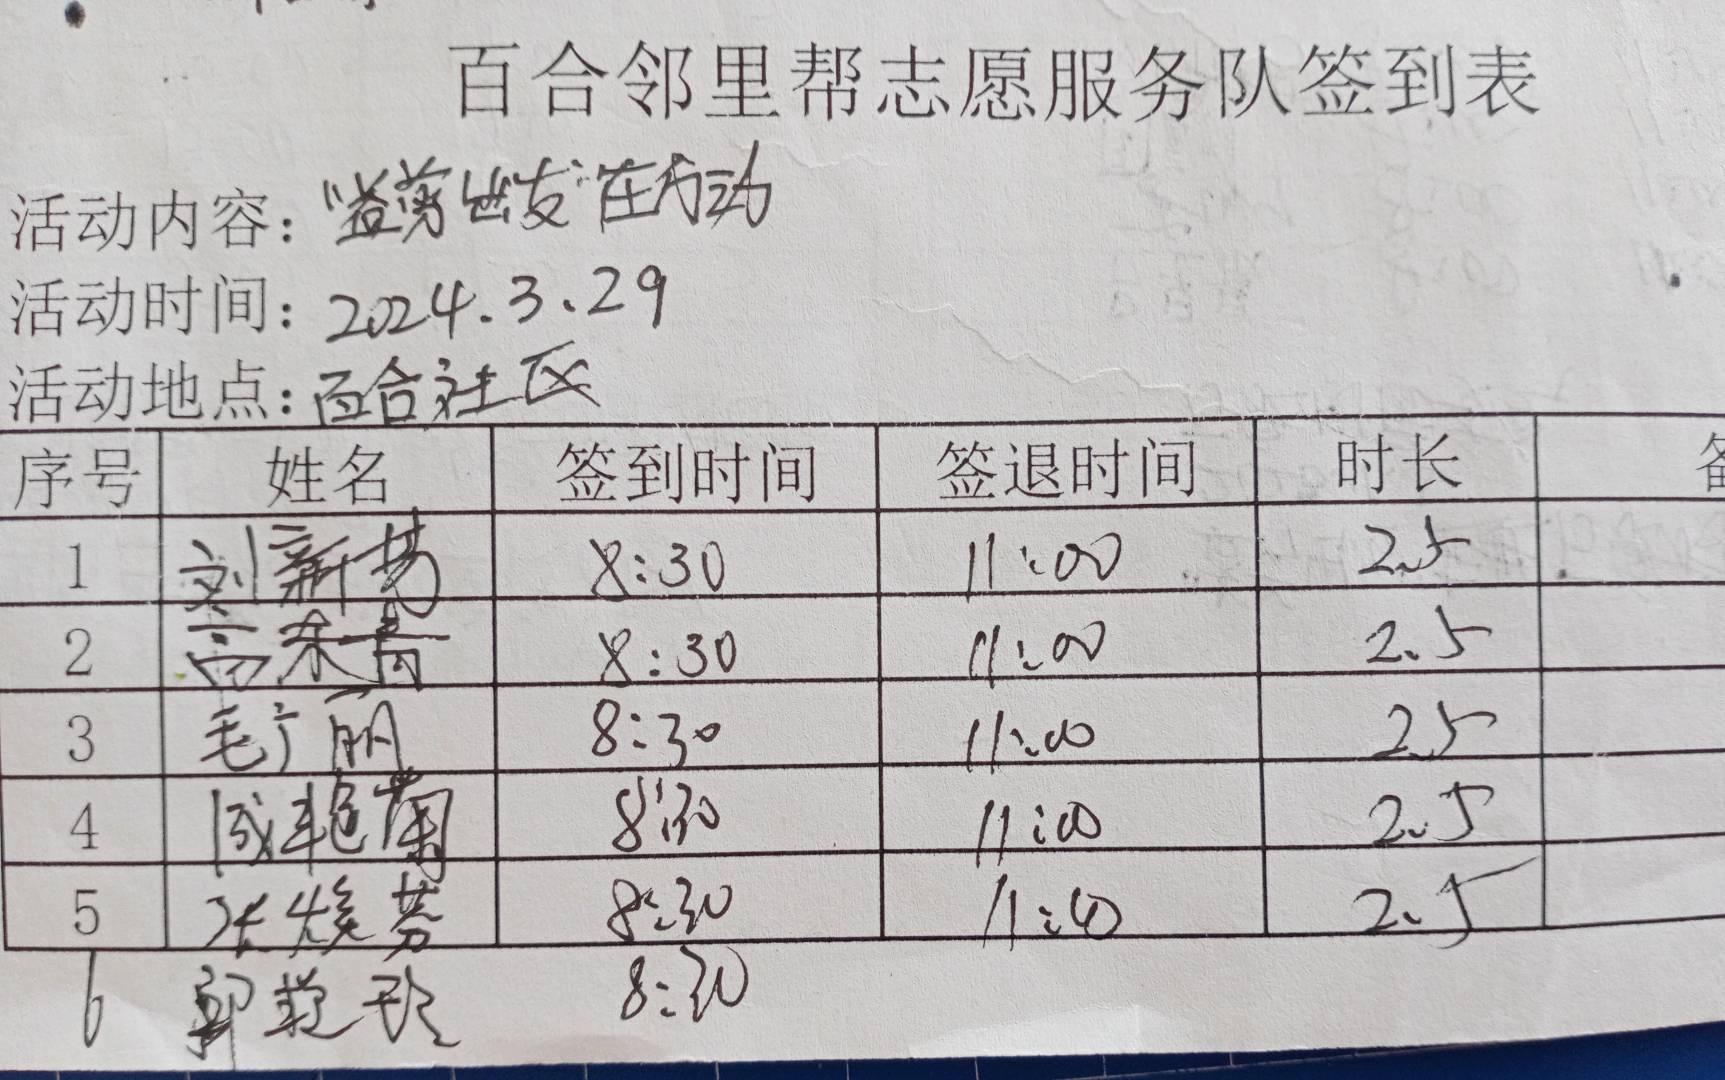 百合邻里帮志愿服务队签到表
活动内容：“益剪出发”在行动
活动时间：2024.3.29
活动地点：百合社区
序号 姓名 签到时间 签退时间 时长 备
1 刘新 8:30 11:00 2.5
2 高 8:30 11:00 2.5
3 毛广丽 8:30 11:00 2.5
4 成艳菊 8:30 11:00 2.5
5 张焕芬 8:30 11:00 2.5
6 郭 8:30